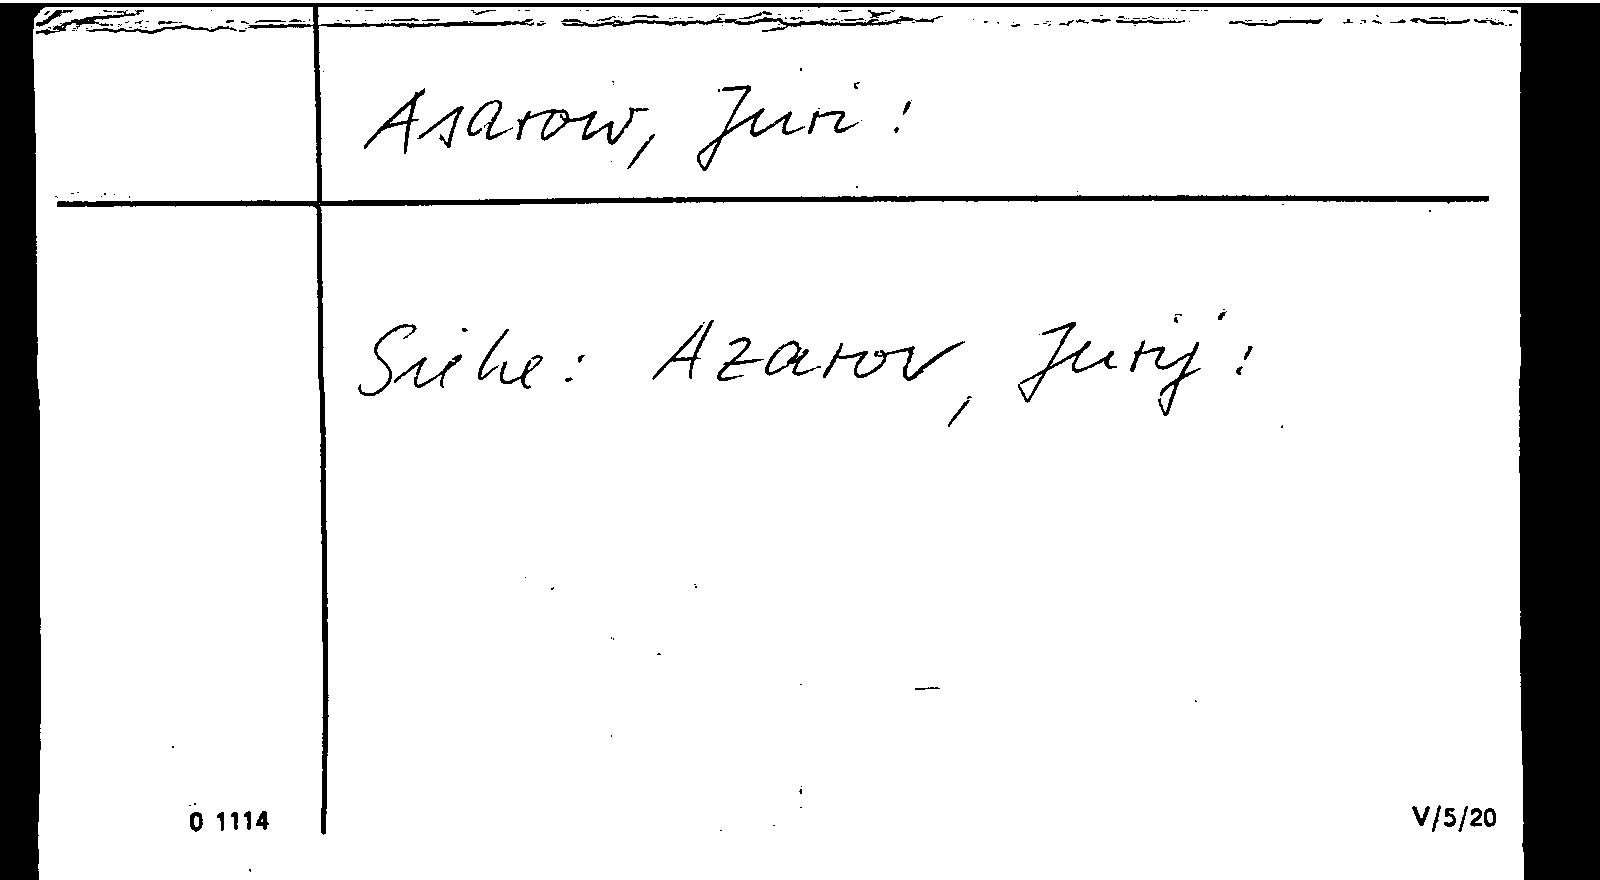 Asarow, Juri:
Siehe: Azarov, Jurij:
0 1114
V/5/20